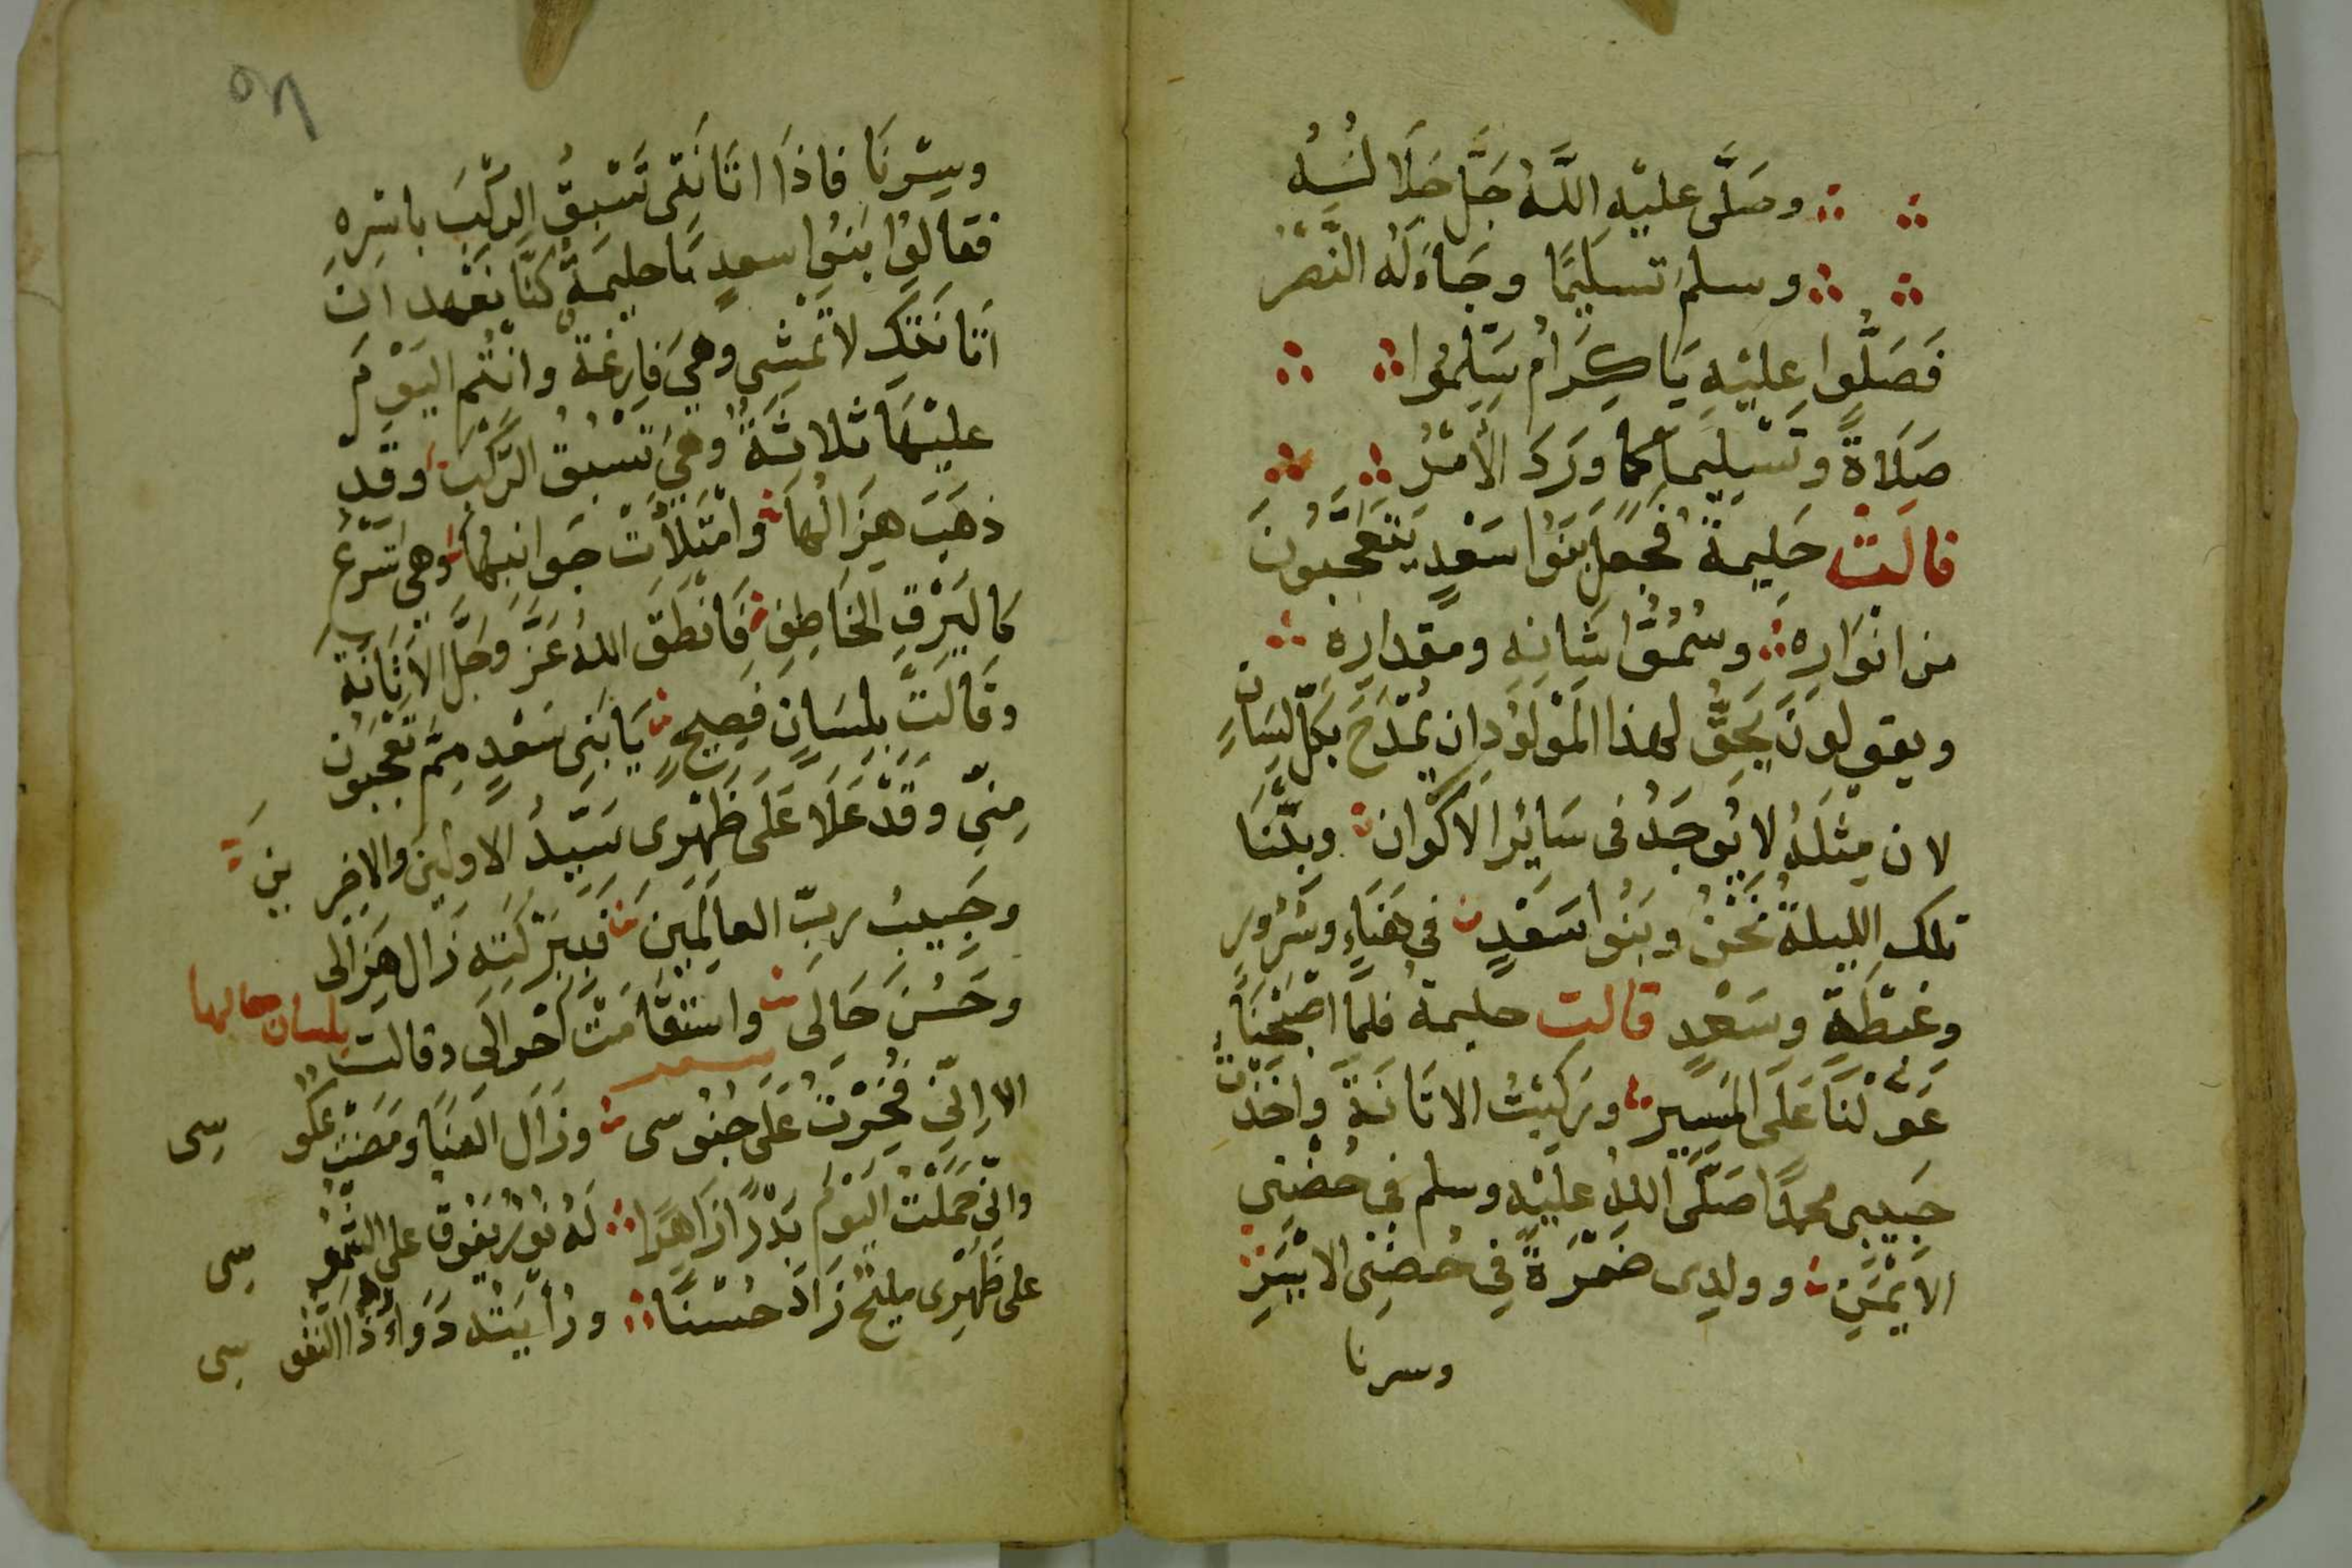 وصَلَّى عليْهِ اللَّهُ جَلَّ جَلَا لُهُ
وسلم تسليمًا وجَاءَ لَهُ النَّصْرُ
فَصَلُّوا عليْهِ يَا كِرَامُ سَلِّمُوا
صَلَاةً وتَسْلِيمًا كما وَرَدَ الأَمْرُ
قالَتْ حَليمة فجعل بَنُوا سَعْدٍ يَتَعَجَّبُونَ
من انوَارِه وسُمُوِّ شَانِهِ ومقدارِه
ويقولونَ يَحِقُّ لهذا المَوْلُودِ ان يُمْدَحَ بكلِّ لِسَانٍ
لان مِثْلَهُ لا يُوجَدُ في سَائِرِ الاكْوان وبِتْنَا
تلك الليلةَ نَحْنُ وبَنُوا سَعْدٍ في هَنَاءٍ وسُرُورٍ
وغبْطَةٍ وسَعْدٍ قالت حليمة فلمَّا اصْبَحْنَا
عَوَّلْنَا عَلَى المَسِيرِ وركبْتُ الاتَانَةَ واخَذْتُ
حَبيبي محمدًا صَلَّى اللهُ عليْهِ وسلم في حُضْنِي
الايْمَنِ وولدِي ضَمْرَةَ في حُضْنِي الايْسَرِ
وسرنا
وسِرْنَا فاذَا اتَانَتِي تَسْبِقُ الرَّكْبَ باسْرِهِ
فقالوا بَنُوا سعدٍ يَا حليمَةُ كنَّا نَعْهد انَ
اتَانَتَكِ لا تمشي وهيَ فارِغَة وانتُم اليَوْمَ
عليْهَا ثلاثَةٌ وهيَ تَسْبقُ الرَّكْبَ وقَدْ
ذهَبَ هزَالُهَا وامْتَلأَتْ جَوانبهَا وهي اسْرَعُ
كالبَرْقِ الخَاطِفِ فَانْطَقَ اللهُ عَزَّ وجَلَّ الاتَانَةَ
وقَالَتْ بلسَانٍ فَصِيحٍ يَا بَنِي سَعْدٍ مِمَّ تعْجَبُون
مِنّي وقَدْ عَلَا عَلَى ظَهْرِي سَيِّدُ الاولينَ والاخِرِينَ
وحَبِيبُ ربّ العالَمِينَ فَبِبَرَكَتِهِ زَال هَزَالى
وحَسُنَ حَالى واسْتقَامَتْ احْوَالى وقالت بلسان حالها
الا اِنّي فَخَرْتُ عَلَى جنُوسى وزَالَ العنَا ومَضَتْ عكُوسِى
وانّي حَمَلْتُ اليَوْمَ بَدْرًا زَاهرًا لَهُ نورٌ يَفُوقُ على الشُّمُوسِى
على ظَهْرِى مليحٌ زَادَ حُسْنًا ورُأيَتُهُ دَوَاءُ ذا النفُوسِى